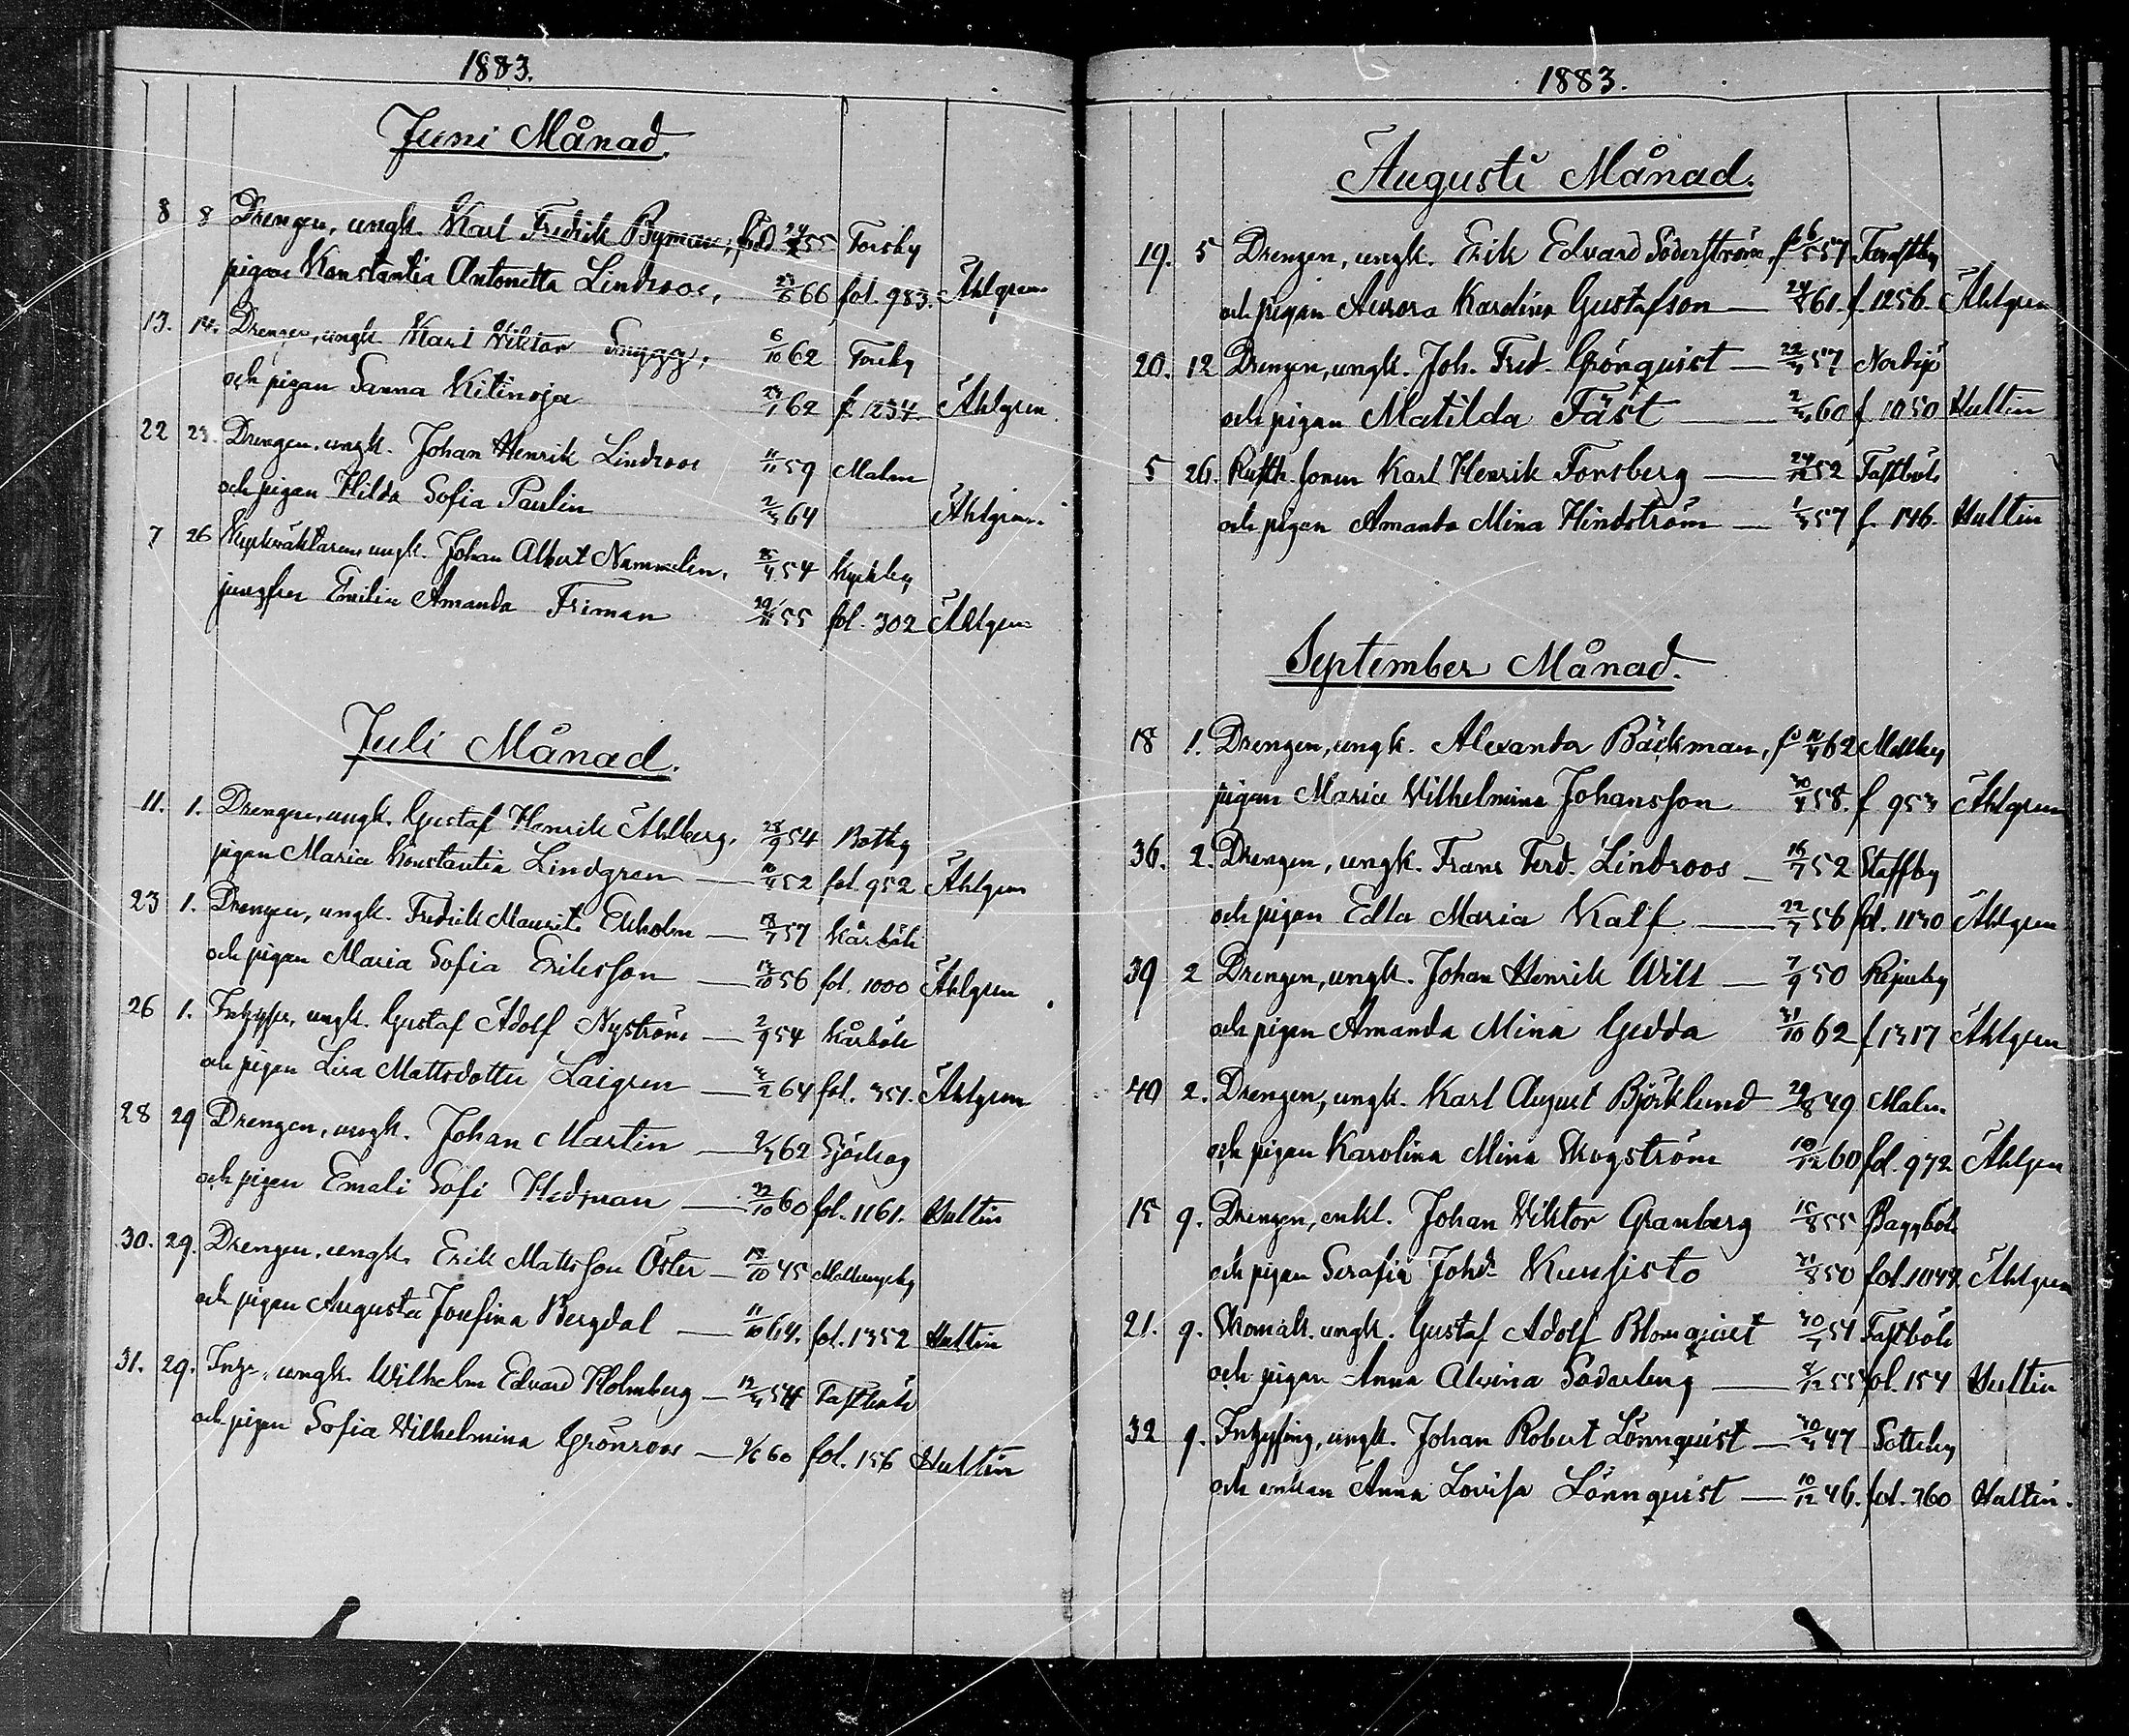 1883.
Juni Månad.
8 8 Drengen, ungk. Karl Fredrik Byman, född 55 Forsby
pigan Konstantia Antonetta Lindroos, 66 fol. 983. Åhlgren
13. 14. Drengen, ungk. Karl Viktor Snygg, 6/10 62 Forsby
och pigan Sanna Kitinoja 62 f. 1234 Åhlgren
22 23. Drengen, ungk. Johan Henrik Lindroos 11/11 59 Malm
och pigan Hilda Sofia Paulin 64 Åhlgren
7 26 ungk. Johan Albert Nummelin, 54 Kyrkby
jungfru Emilia Amanda Friman 55 fol. 302 Åhlgren
Juli Månad.
11. 1. Drengen, ungk. Gustaf Henrik Åhlberg, 28/9 54 Bothy
pigan Maria Konstantia Lindgren — 52 fol. 952 Åhlgren
23 1. Drengen, ungk. Fredrik Maurits Ekholm — 57 Kårböle
och pigan Maria Sofia Eriksson — 13/10 56 fol. 1000 Åhlgren
26 1. ungk. Gustaf Adolf Nyström — 2/9 54 Kårböle
och pigan Lisa Mattsdotter Laigren — 64 fol. 351. Åhlgren
28 29 Drengen, ungk. Johan Martin — 62 Sjöskog
och pigan Emeli Sofi Hedman — 22/10 60 fol. 1161. Hultin
30. 29. Drengen, ungk. Erik Mattsson Öster — 45
och pigan Augusta Josefina Bergdal — 11/10 64. fol. 1352 Hultin
31. 29. ungk. Wilhelm Edvard Holmberg — 54 Fastböle
och pigan Sofia Vilhelmina Grönroos — 60 fol. 156 Hultin
1883.
Augusti Månad.
19. 5 Drengen, ungk. Erik Edvard Söderström, 57
och pigan Aurora Karolina Gustafson — 61. f. 1256. Åhlgren
20. 12 Drengen, ungk. Joh. Fred. Grönquist — 57
och pigan Matilda Fäst — 60 f. 1050 Hultin
5 26. Karl Henrik Forsberg — 52 Fastböle
och pigan Amanda Mina Hindström — 57 f. 146. Hultin
September Månad.
18 1. Drengen, ungk. Alexander Bäckman, 62
pigan Maria Vilhelmina Johansson 58. f. 953 Åhlgren
36. 2. Drengen, ungk. Frans Ferd. Lindroos — 16/7 52 Staffby
och pigan Edla Maria Kalf — 56 fol. 1130 Åhlgren
39 2 Drengen, ungk. Johan Henrik Will — 7/9 50
och pigan Amanda Mina Gedda 31/10 62 f. 1317 Åhlgren
40 2. Drengen, ungk. Karl August Björklund 49 Malm
och pigan Karolina Mina Skogström 10/12 60 fol. 972 Åhlgren
15 9. Drengen, enkl. Johan Viktor Granberg 15/8 55 Baggböle
och pigan Serafia Johdr. Kuusisto 50 fol. Åhlgren
21. 9. Skomak. ungk. Gustaf Adolf Blomquist 54 Fastböle
och pigan Anna Alvina Söderberg — 55 fol. 154 Hultin
32 9. ungk. Johan Robert Lönnquist — 47 Sotteby
och enkan Anna Lovisa Lönnquist — 10/12 46. fol. 760 Hultin.